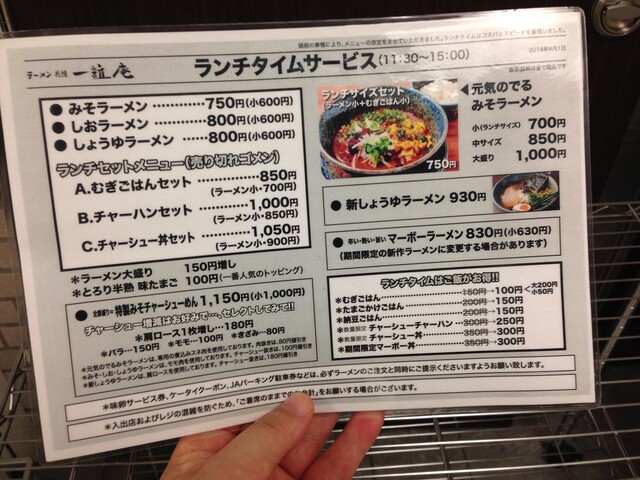 諸般の事情により、メニューの改定をさせていただきました。ランチタイムはコスパとスピードを重視しました。
2014年4月1日
ラーメン 札幌 一粒庵
ランチタイムサービス(11:30〜15:00)
表示価格は全て税込です
● みそラーメン …………750円(小600円)
● しおラーメン …………800円(小600円)
● しょうゆラーメン ……800円(小600円)
ランチセットメニュー(売り切れゴメン)
A.むぎごはんセット …………850円
(ラーメン小・700円)
B.チャーハンセット …………1,000円
(ラーメン小・850円)
C.チャーシュー丼セット ………1,050円
(ラーメン小・900円)
*ラーメン大盛り 150円増し
*とろり半熟 味たまご 100円(一番人気のトッピング)
● 全部盛り= 特製みそチャーシューめん 1,150円(小1,000円)
チャーシュー増減はお好みで…、セレクトしてみて!!
*肩ロース1枚増し…180円
*バラ…150円 *モモ…100円 *きざみ…80円
*元気のでるみそラーメンは、専用の煮込みスネ肉を使用しております。肉抜きは、80円値引き
*みそ・しお・しょうゆラーメンは、モモ肉を使用しております。チャーシュー抜きは、100円値引き
*新しょうゆラーメンは、肩ロースを使用しております。チャーシュー抜きは、180円値引き
ランチサイズセット
(ラーメン小+むぎごはん小)
750円
◀元気のでる
みそラーメン
小(ランチサイズ) 700円
中サイズ 850円
大盛り 1,000円
● 新しょうゆラーメン 930円
● 辛い・熱い・旨い マーボーラーメン 830円(小630円)
(期間限定の新作ラーメンに変更する場合があります)
ランチタイムはご飯がお得!!
*むぎごはん ……150円→100円<大200円 小50円
*たまごかけごはん ……200円→150円
*納豆ごはん ……200円→150円
*数量限定 チャーシューチャーハン …300円→250円
*数量限定 チャーシュー丼 ……350円→300円
*期間限定マーボー丼 ……350円→300円
*味卵サービス券、ケータイクーポン、JAパーキング駐車券などは、必ずラーメンのご注文と同時にご提示くださいますようお願い致します。
*入出店およびレジの混雑を防ぐため、「ご着席のままでのお会計」をお願いする場合がございます。